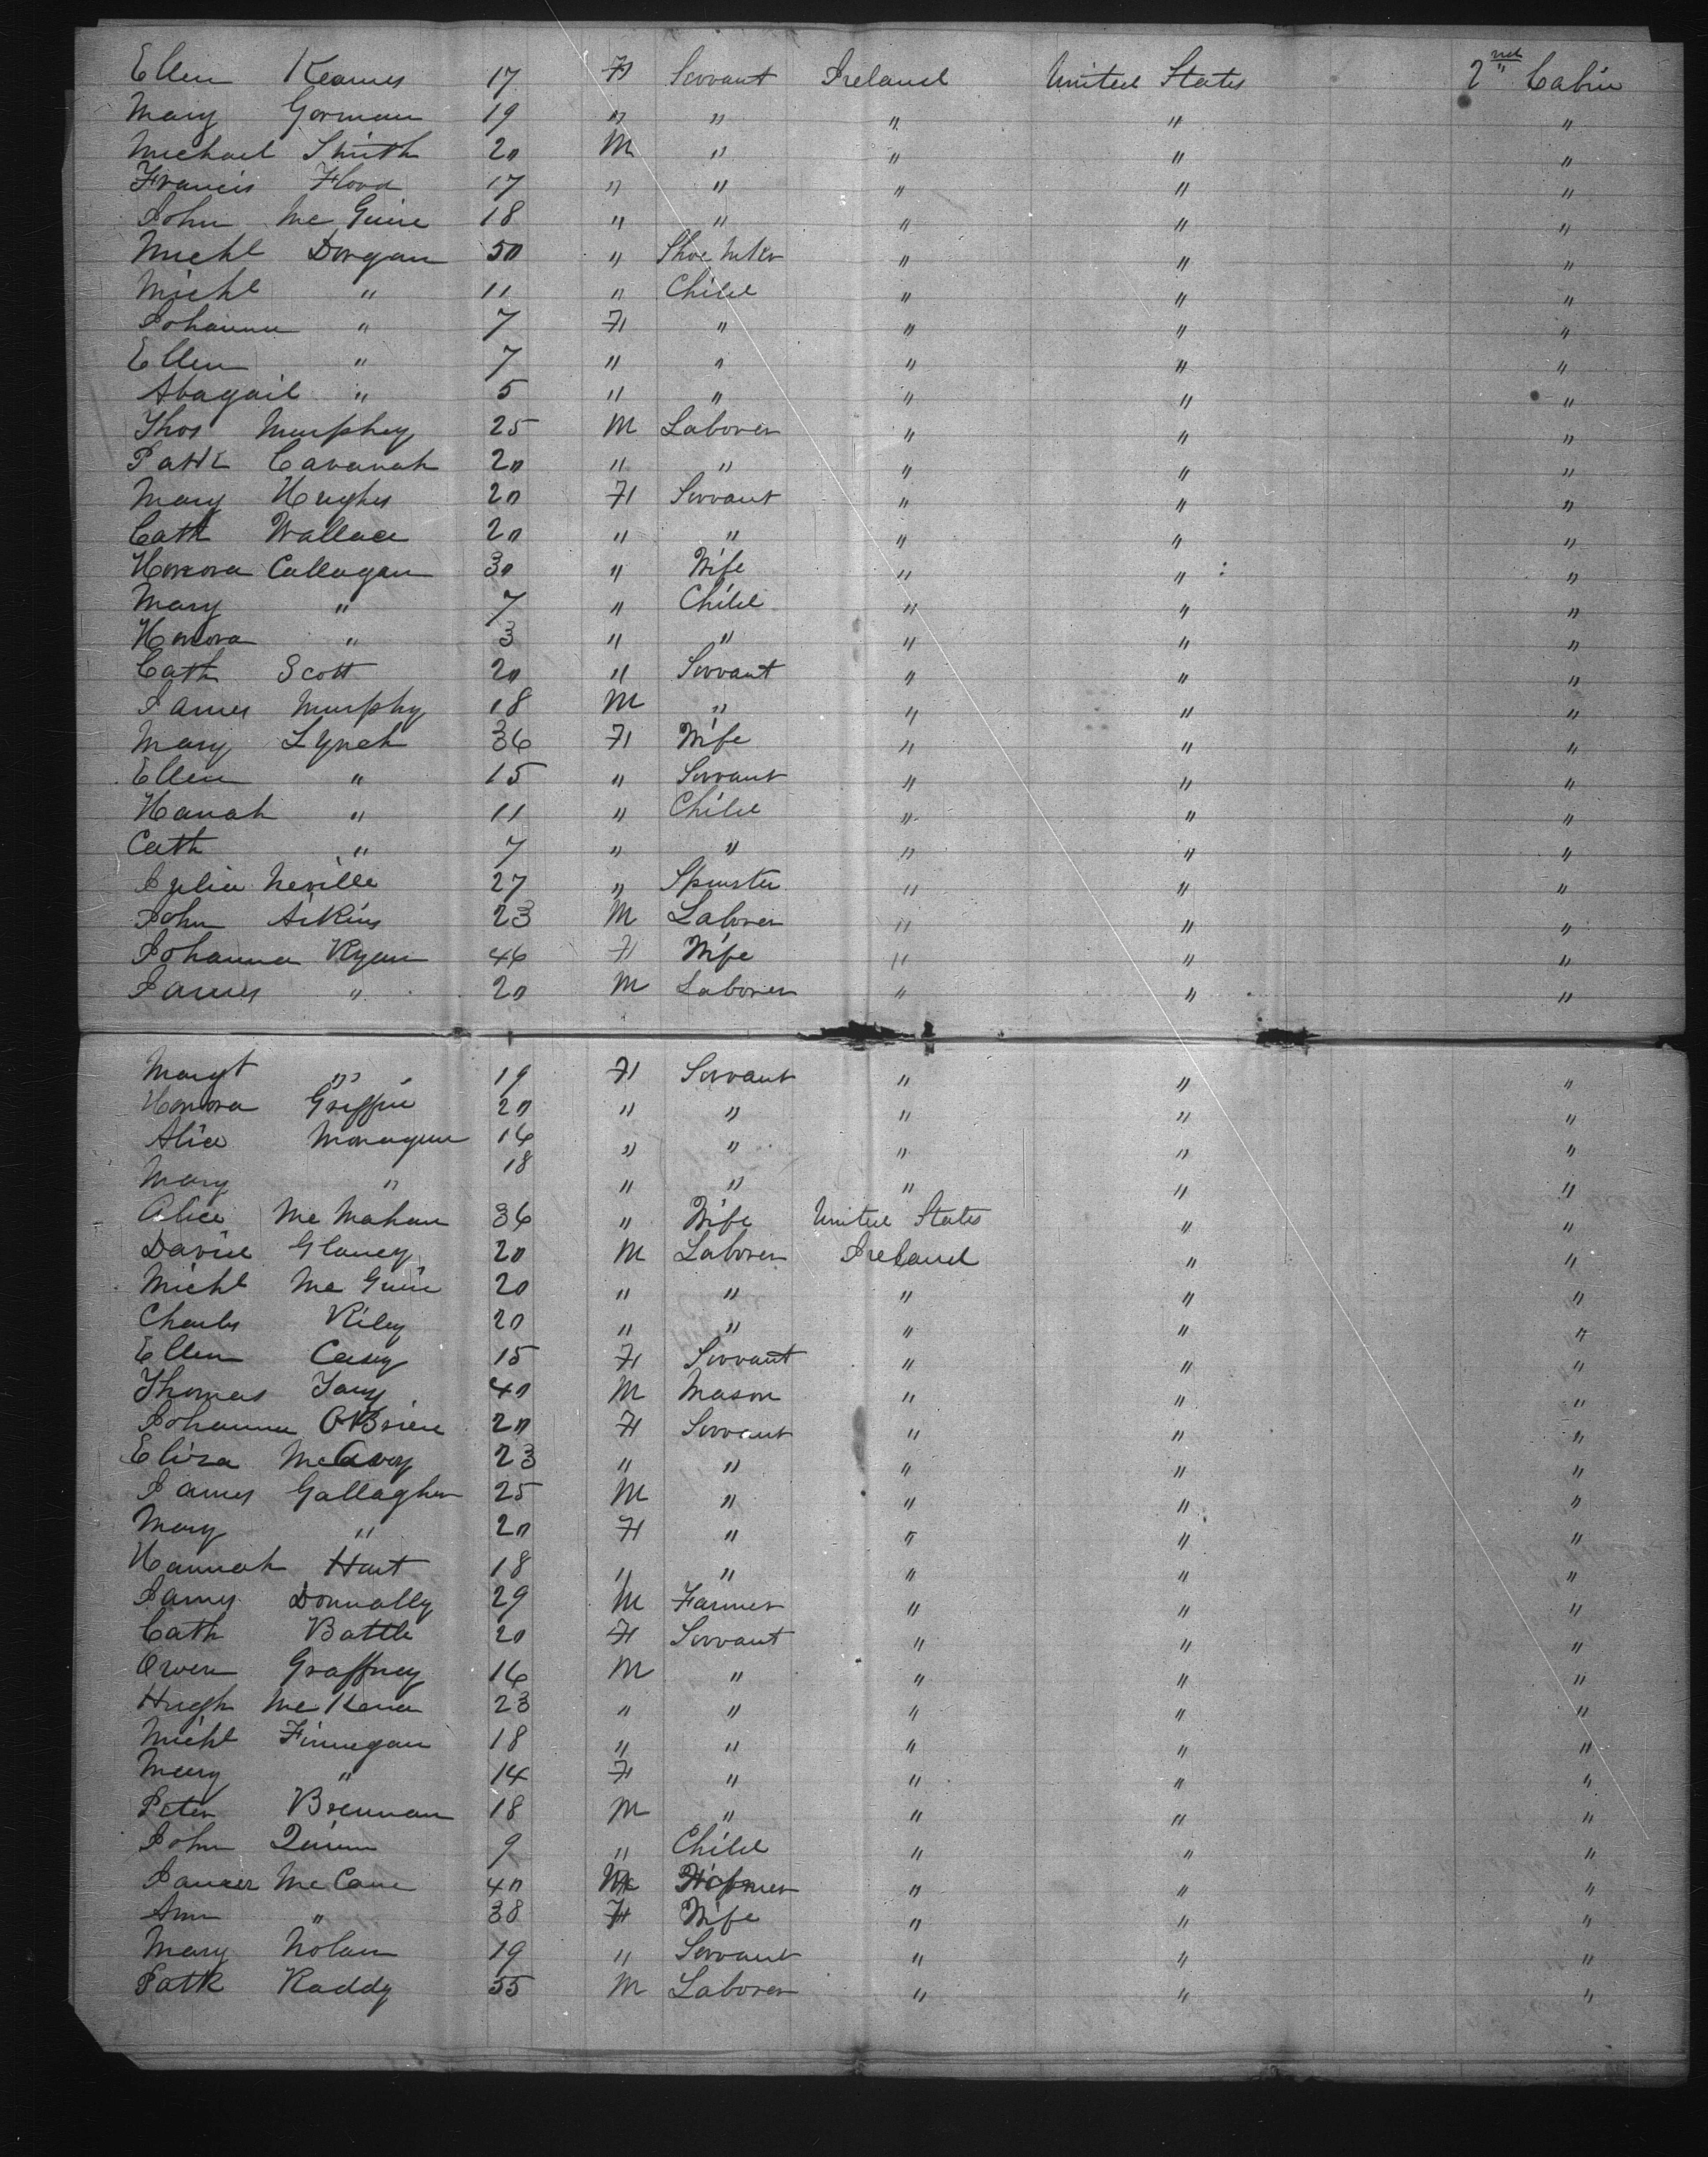 Ellen Kearnes 17 F Servant Ireland United States 2nd Cabin
Mary Gorman 19 " " " " "
Michael Smith 20 M " " " "
Francis Flood 17 " " " " "
John McGuire 18 " " " " "
Michl Dorgan 50 " Shoe Mkr " " "
Michl " 11 " Child " " "
Johanna " 7 F " " " "
Ellen " 7 " " " " "
Abagail " 5 " " " " "
Thos Murphy 25 M Laborer " " "
Patk Cavanah 20 " " " " "
Mary Hughes 20 F Servant " " "
Cath Wallace 20 " " " " "
Honora Callagan 30 " Wife " " "
Mary " 7 " Child " " "
Honora " 3 " " " " "
Cath Scott 20 " Servant " " "
James Murphy 18 M " " " "
Mary Lynch 36 F Wife " " "
Ellen " 15 " Servant " " "
Hanah " 11 " Child " " "
Cath " 7 " " " " "
Julia Neville 27 " Spinster " " "
John Aikins 23 M Laborer " " "
Johanna Ryan 46 F Wife " " "
James " 20 M Laborer " " "
Margt " 19 F Servant " " "
Honora Griffin 20 " " " " "
Alice Monagun 16 " " " " "
Mary " 18 " " " " "
Alice McMahan 36 " Wife United States " "
David Glancy 20 M Laborer Ireland " "
Michl McGuire 20 " " " " "
Charles Riley 20 " " " " "
Ellen Casey 15 F Servant " " "
Thomas 40 M Mason " " "
Johanna O'Brien 20 F Servant " " "
Eliza McAvoy 23 " " " " "
James Gallagher 25 M " " " "
Mary " 20 F " " " "
Hannah Hart 18 " " " " "
James Donnolly 29 M Farmer " " "
Cath Battle 20 F Servant " " "
Owen Graffney 16 M " " " "
Hugh McKena 23 " " " " "
Michl Finnegan 18 " " " " "
Mary " 14 F " " " "
Peter Brennan 18 M " " " "
John Quinn 9 " Child " " "
James McCane 40 M " " "
Ann " 38 F Wife " " "
Mary Nolan 19 " Servant " " "
Patk Raddy 55 M Laborer " " "